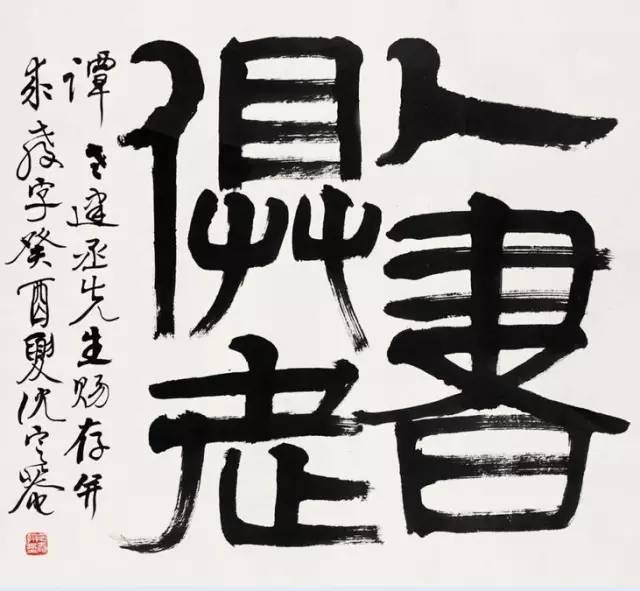 人書
俱老
譚老建丞先生賜存并
求教字癸酉夏沈定庵